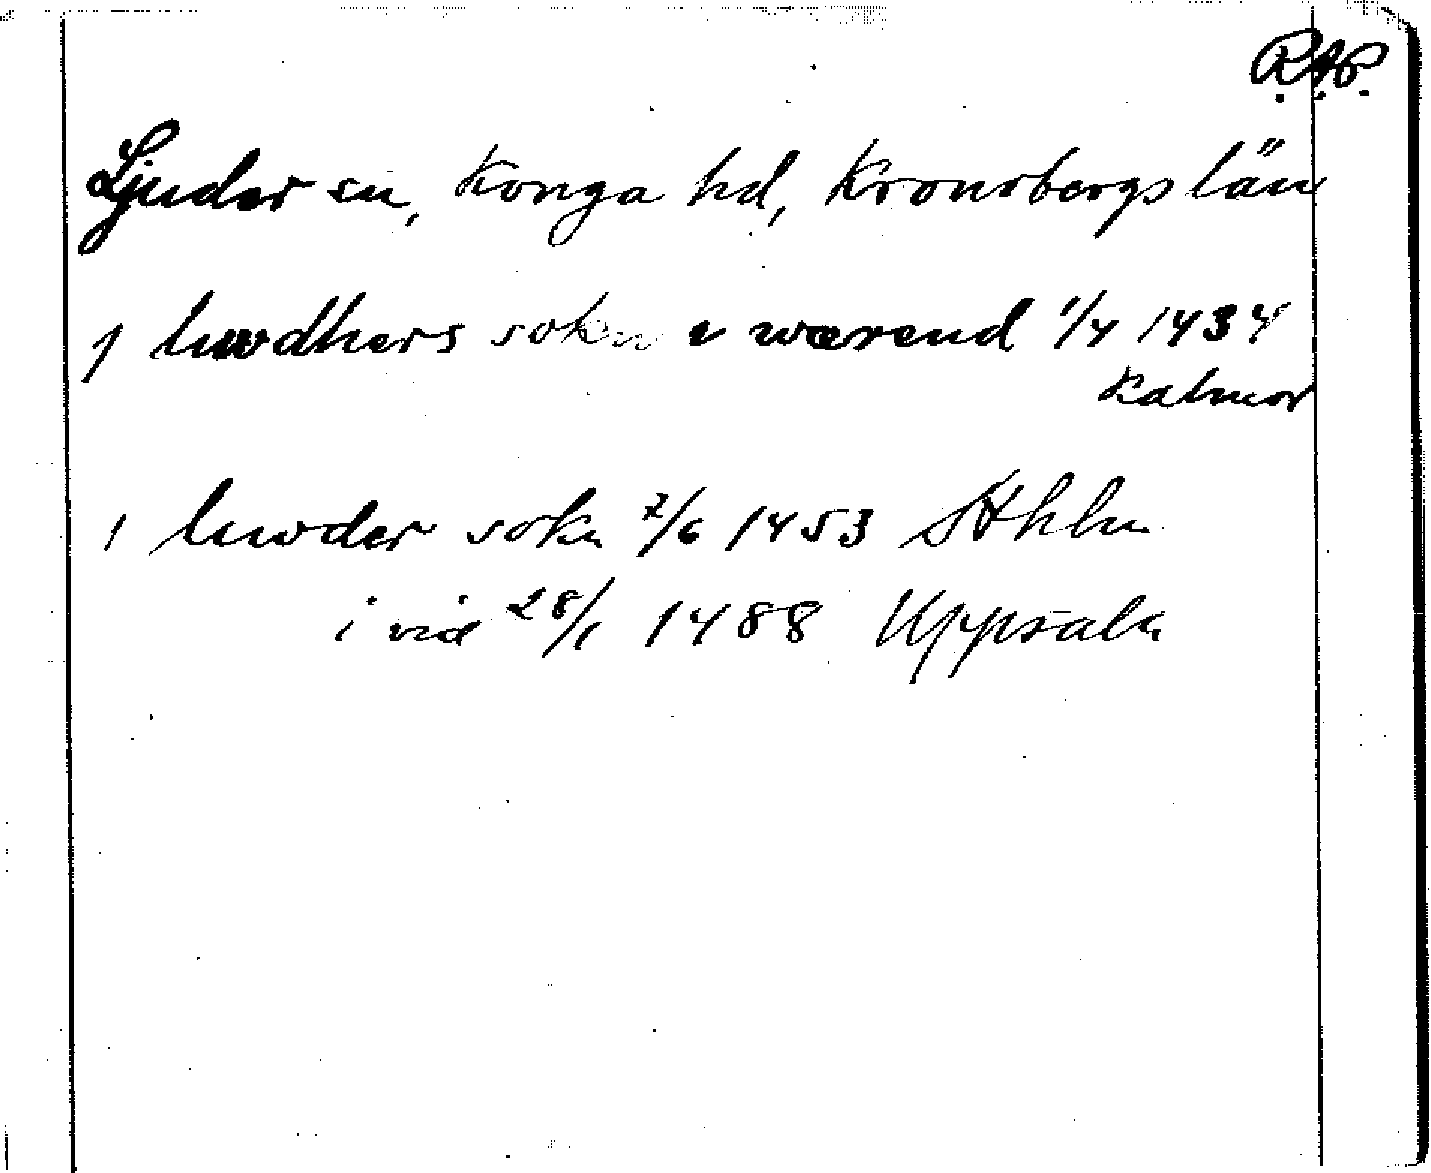 R.A.P.
Ljuder sn, Konga hd, Kronobergs län
J luwdhers sokn i wærend 1/4 1434
Kalmar
i luwder sokn 2/6 1453 Sthlm
i vid 28/1 1488 Uppsala